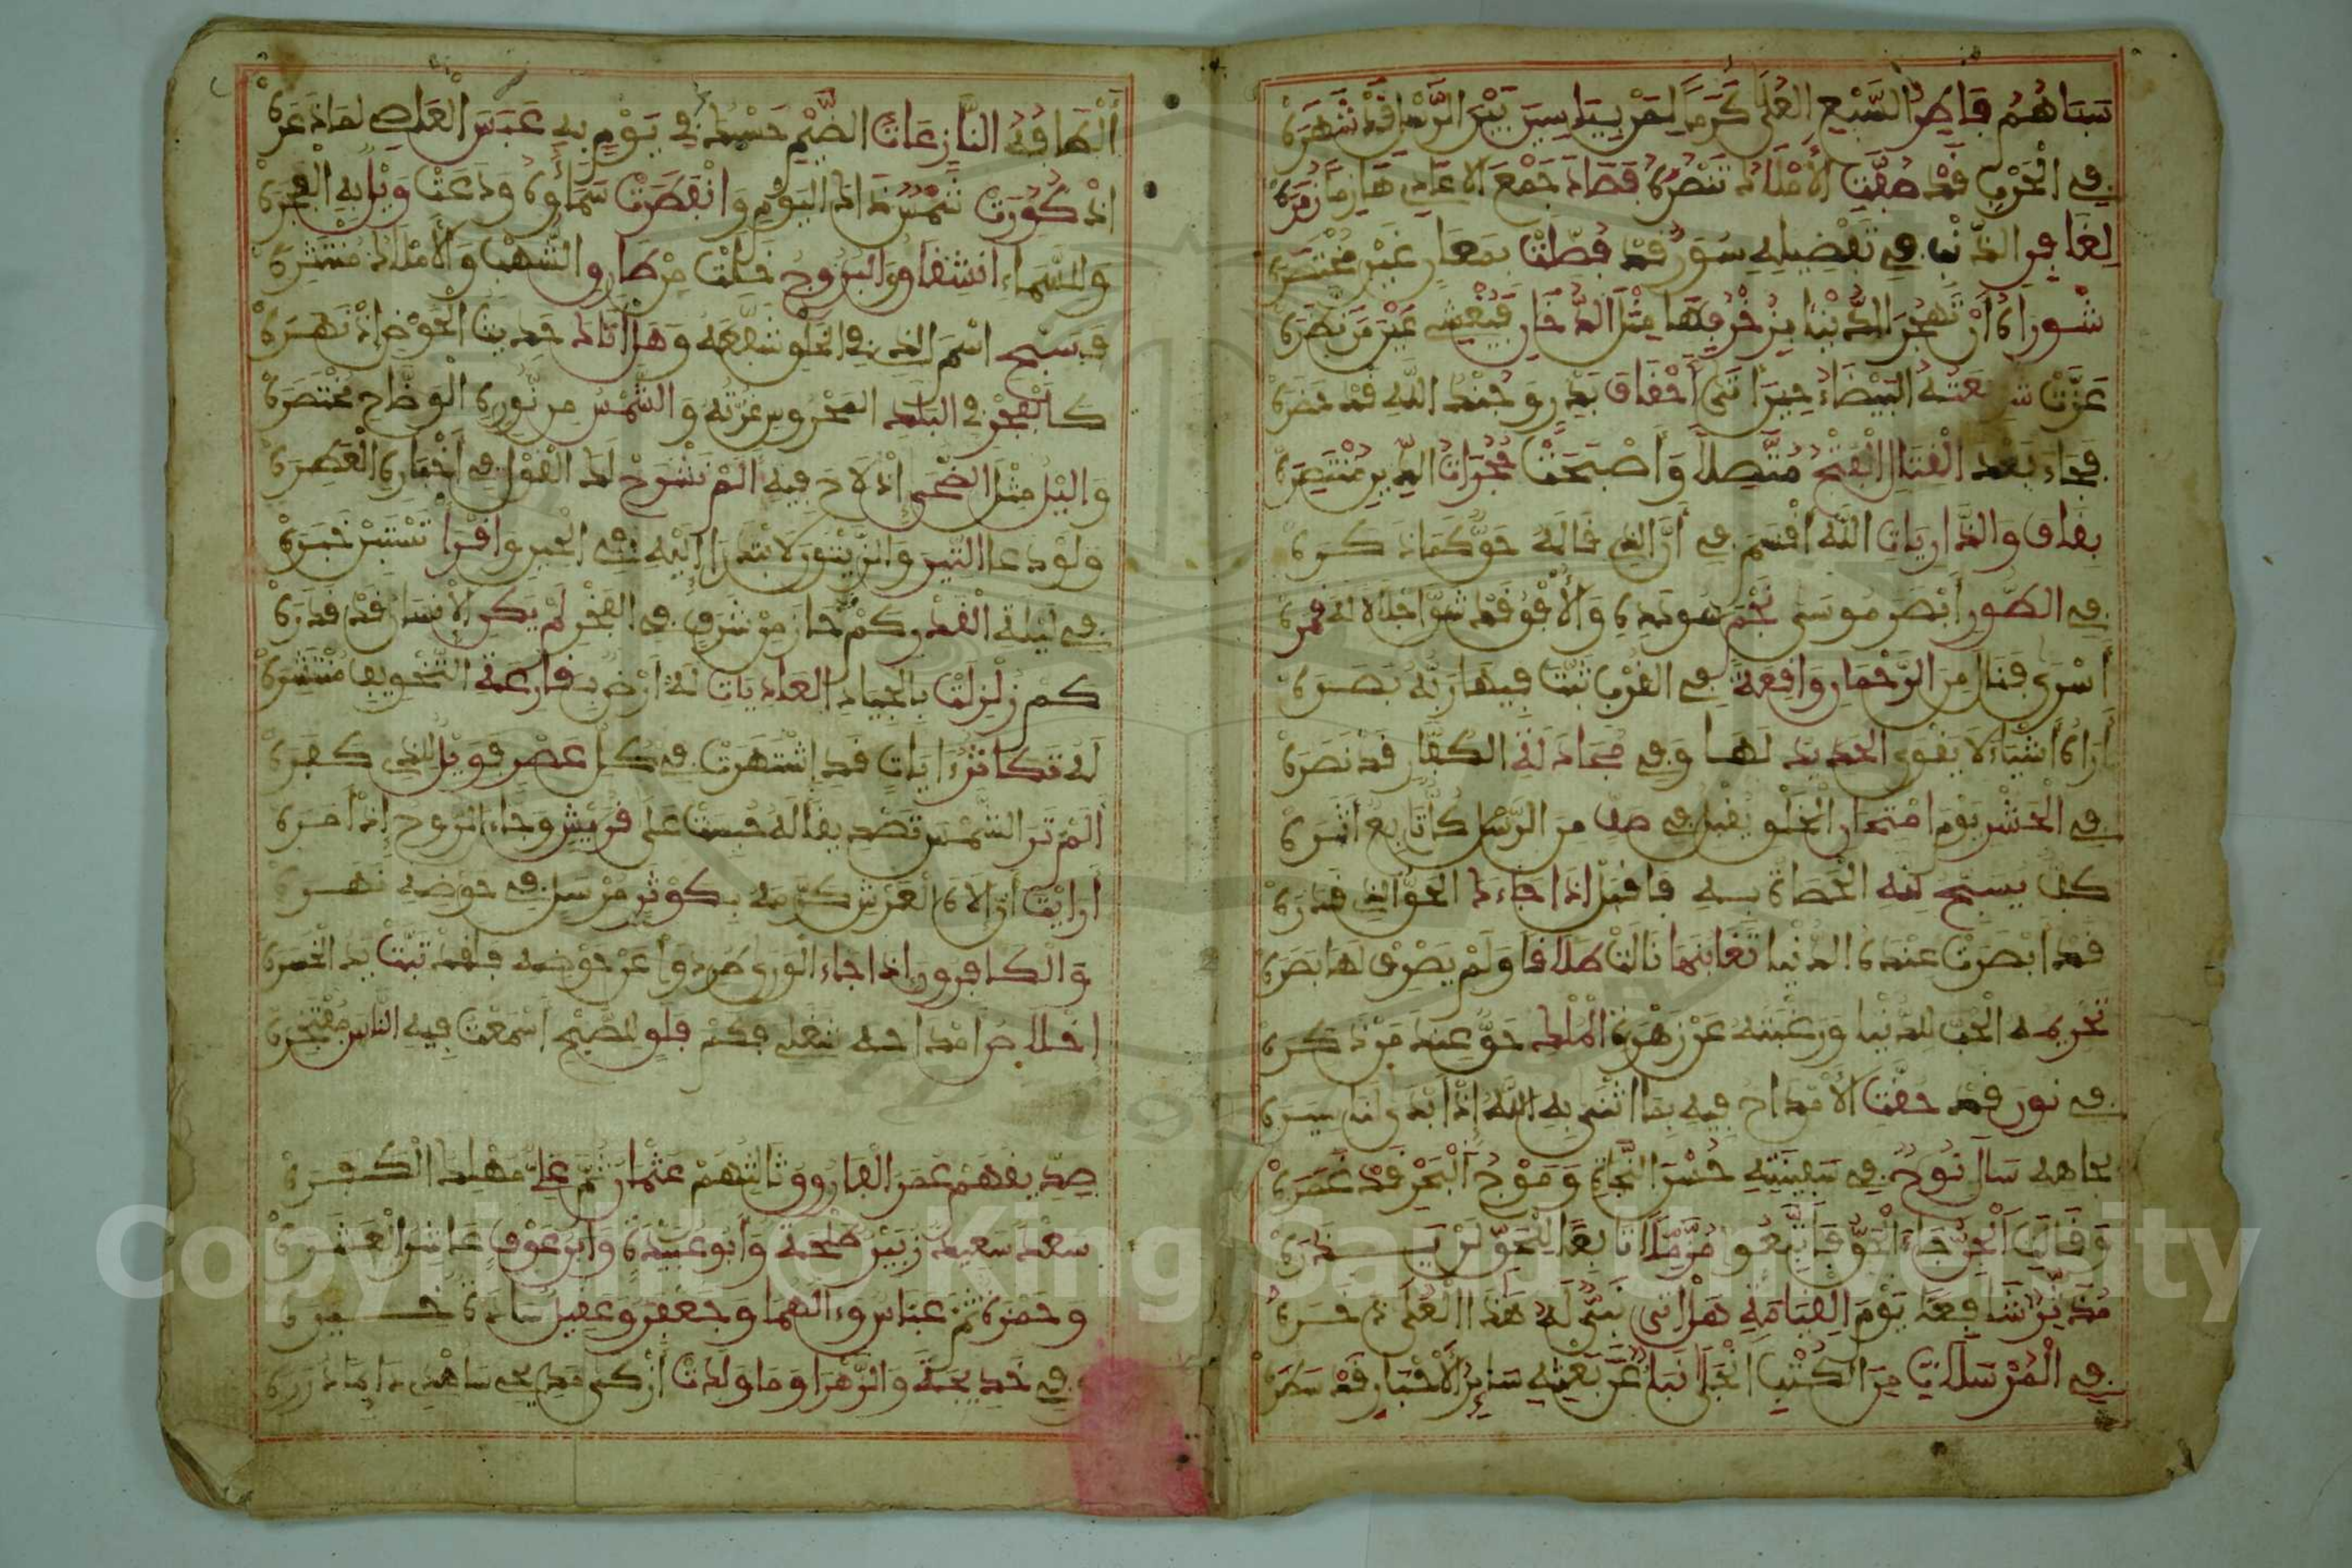 سباهم فاطر السبع العلى كرما لمن بياسين بين الرسل قد شهره
في الحرب قد صفت الأملاك تنصره فصاد جمع الأعادي هازما زمره
لغافر الذنب في تفضيله سور قد فصلت بمعان غير منحصره
شوراه أن تهجر الدنيا فزخرفها مثل الدخان فيغشي عين من نظره
عزت شريعته البيضاء حين أتى أحقاف بدر وجند الله قد حضره
فجاء بعد القتال الفتح متصلا وأصبحت حجرات الدين منتصره
بقاف والذاريات الله أقسم في أن الذي قاله حق كما ذكره
في الطور أبصر موسى نجم سودده والأفق قد شق إجلالا له قمره
أسرى فنال من الرحمن واقعة في القرب ثبت فيها ربه بصره
أراه أشياء لا يقوى الحديد لها وفي مجادلة الكفار قد نصره
في الحشر يوم امتحان الخلق يقبل في صف من الرسل كل تابع أثره
كف يسبح لله الحصاة به فاقبل إذا جاءك الحق الذي قدره
قد أبصرت عنده الدنيا تغابنها نالت طلاقا ولم يصرف لها بصره
تحريمه الحب للدنيا ورغبته عن زهرة الملك حق عند من ذكره
في نون قد حقت الأمداح فيه بما أثنى به الله إذ أبدى لنا سيره
بجاهه سال نوح في سفينته حسن النجاة وموج البحر قد غمره
وقالت الجن جاء الحق فاتبعوا مزملا تابعا للحق لن يذره
مدثرا شافعا يوم القيامة هل أتى نبي له هذا العلى ذخره
في المرسلات من الكتب انجلى نبأ عن بعثه سائر الأخبار قد سطره
ألطافه النازعات الضيم حسبك في يوم به عبس العاصي لما ذعره
إذ كورت شمس ذاك اليوم وانفطرت سماؤه ودعت ويل به الفجره
وللسماء انشقاق والبروج خلت من طارق الشهب والأملاك منتثره
فسبح اسم الذي في الخلق شفعه وهل أتاك حديث الحوض إذ نهره
كالفجر في البلد المحروس غرته والشمس من نوره الوضاح مختصره
والليل مثل الضحى إذ لاح فيه ألم نشرح لك القول في أخباره العطره
ولو دعا التين والزيتون لابتدرا إليه في الحين واقرأ تستبن خبره
في ليلة القدر كم حاز من شرف في الفخر لم يكن الإنسان قد قدره
كم زلزلت بالجياد العاديات له أرض بقارعة التخويف منتشره
له تكاثر ءايات قد اشتهرت في كل عصر فويل للذي كفره
ألم تر الشمس تصديقا له حبست على قريش وجاء الروح إذ أمره
أرأيت أن إلاه العرش كرمه بكوثر مرسل في حوضه نهره
والكافرون إذا جاء الورى طردوا عن حوضه فلقد تبت يد الكفره
إخلاص أمداحه شغلي فكم فلق للصبح أسمعت فيه الناس مفتخره
صديقهم عمر الفاروق وثالثهم عثمان ثم علي مهلك الكفره
سعد سعيد زبير طلحة وأبو عبيدة وابن عوف عاشر العشره
وحمزة ثم عباس وءالهما وجعفر وعقيل سادة خيره
وفي خديجة والزهرا وما ولدت أزكى مديحي سأهدي دائما درره